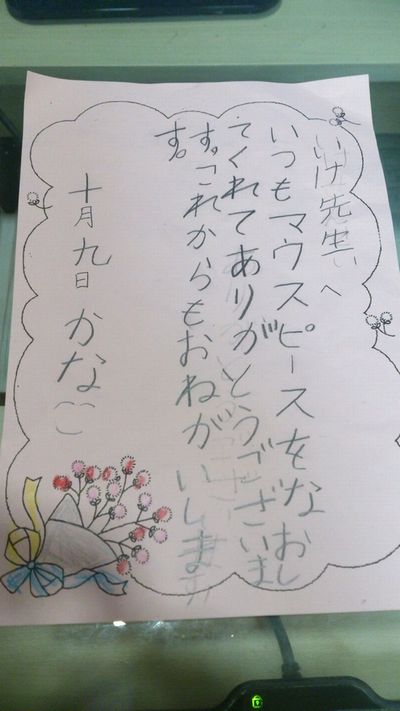 いけ先生へ
いつもマウスピースをなおし
てくれてありがとうございま
す。これからもおねがいします
す。
十月九日 かなこ